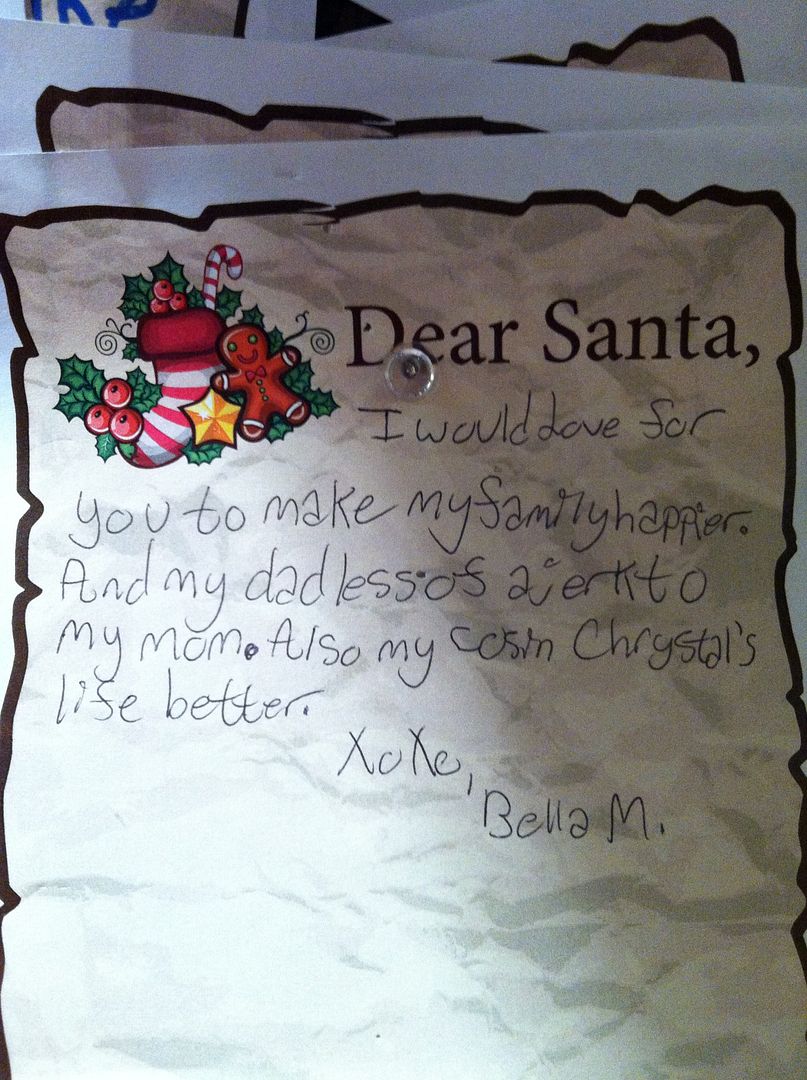 Dear Santa,
I would love for
you to make my family happier.
And my dad less of a jerk to
my mom. Also my cosin Chrystal's
life better.
XoXo,
Bella M.